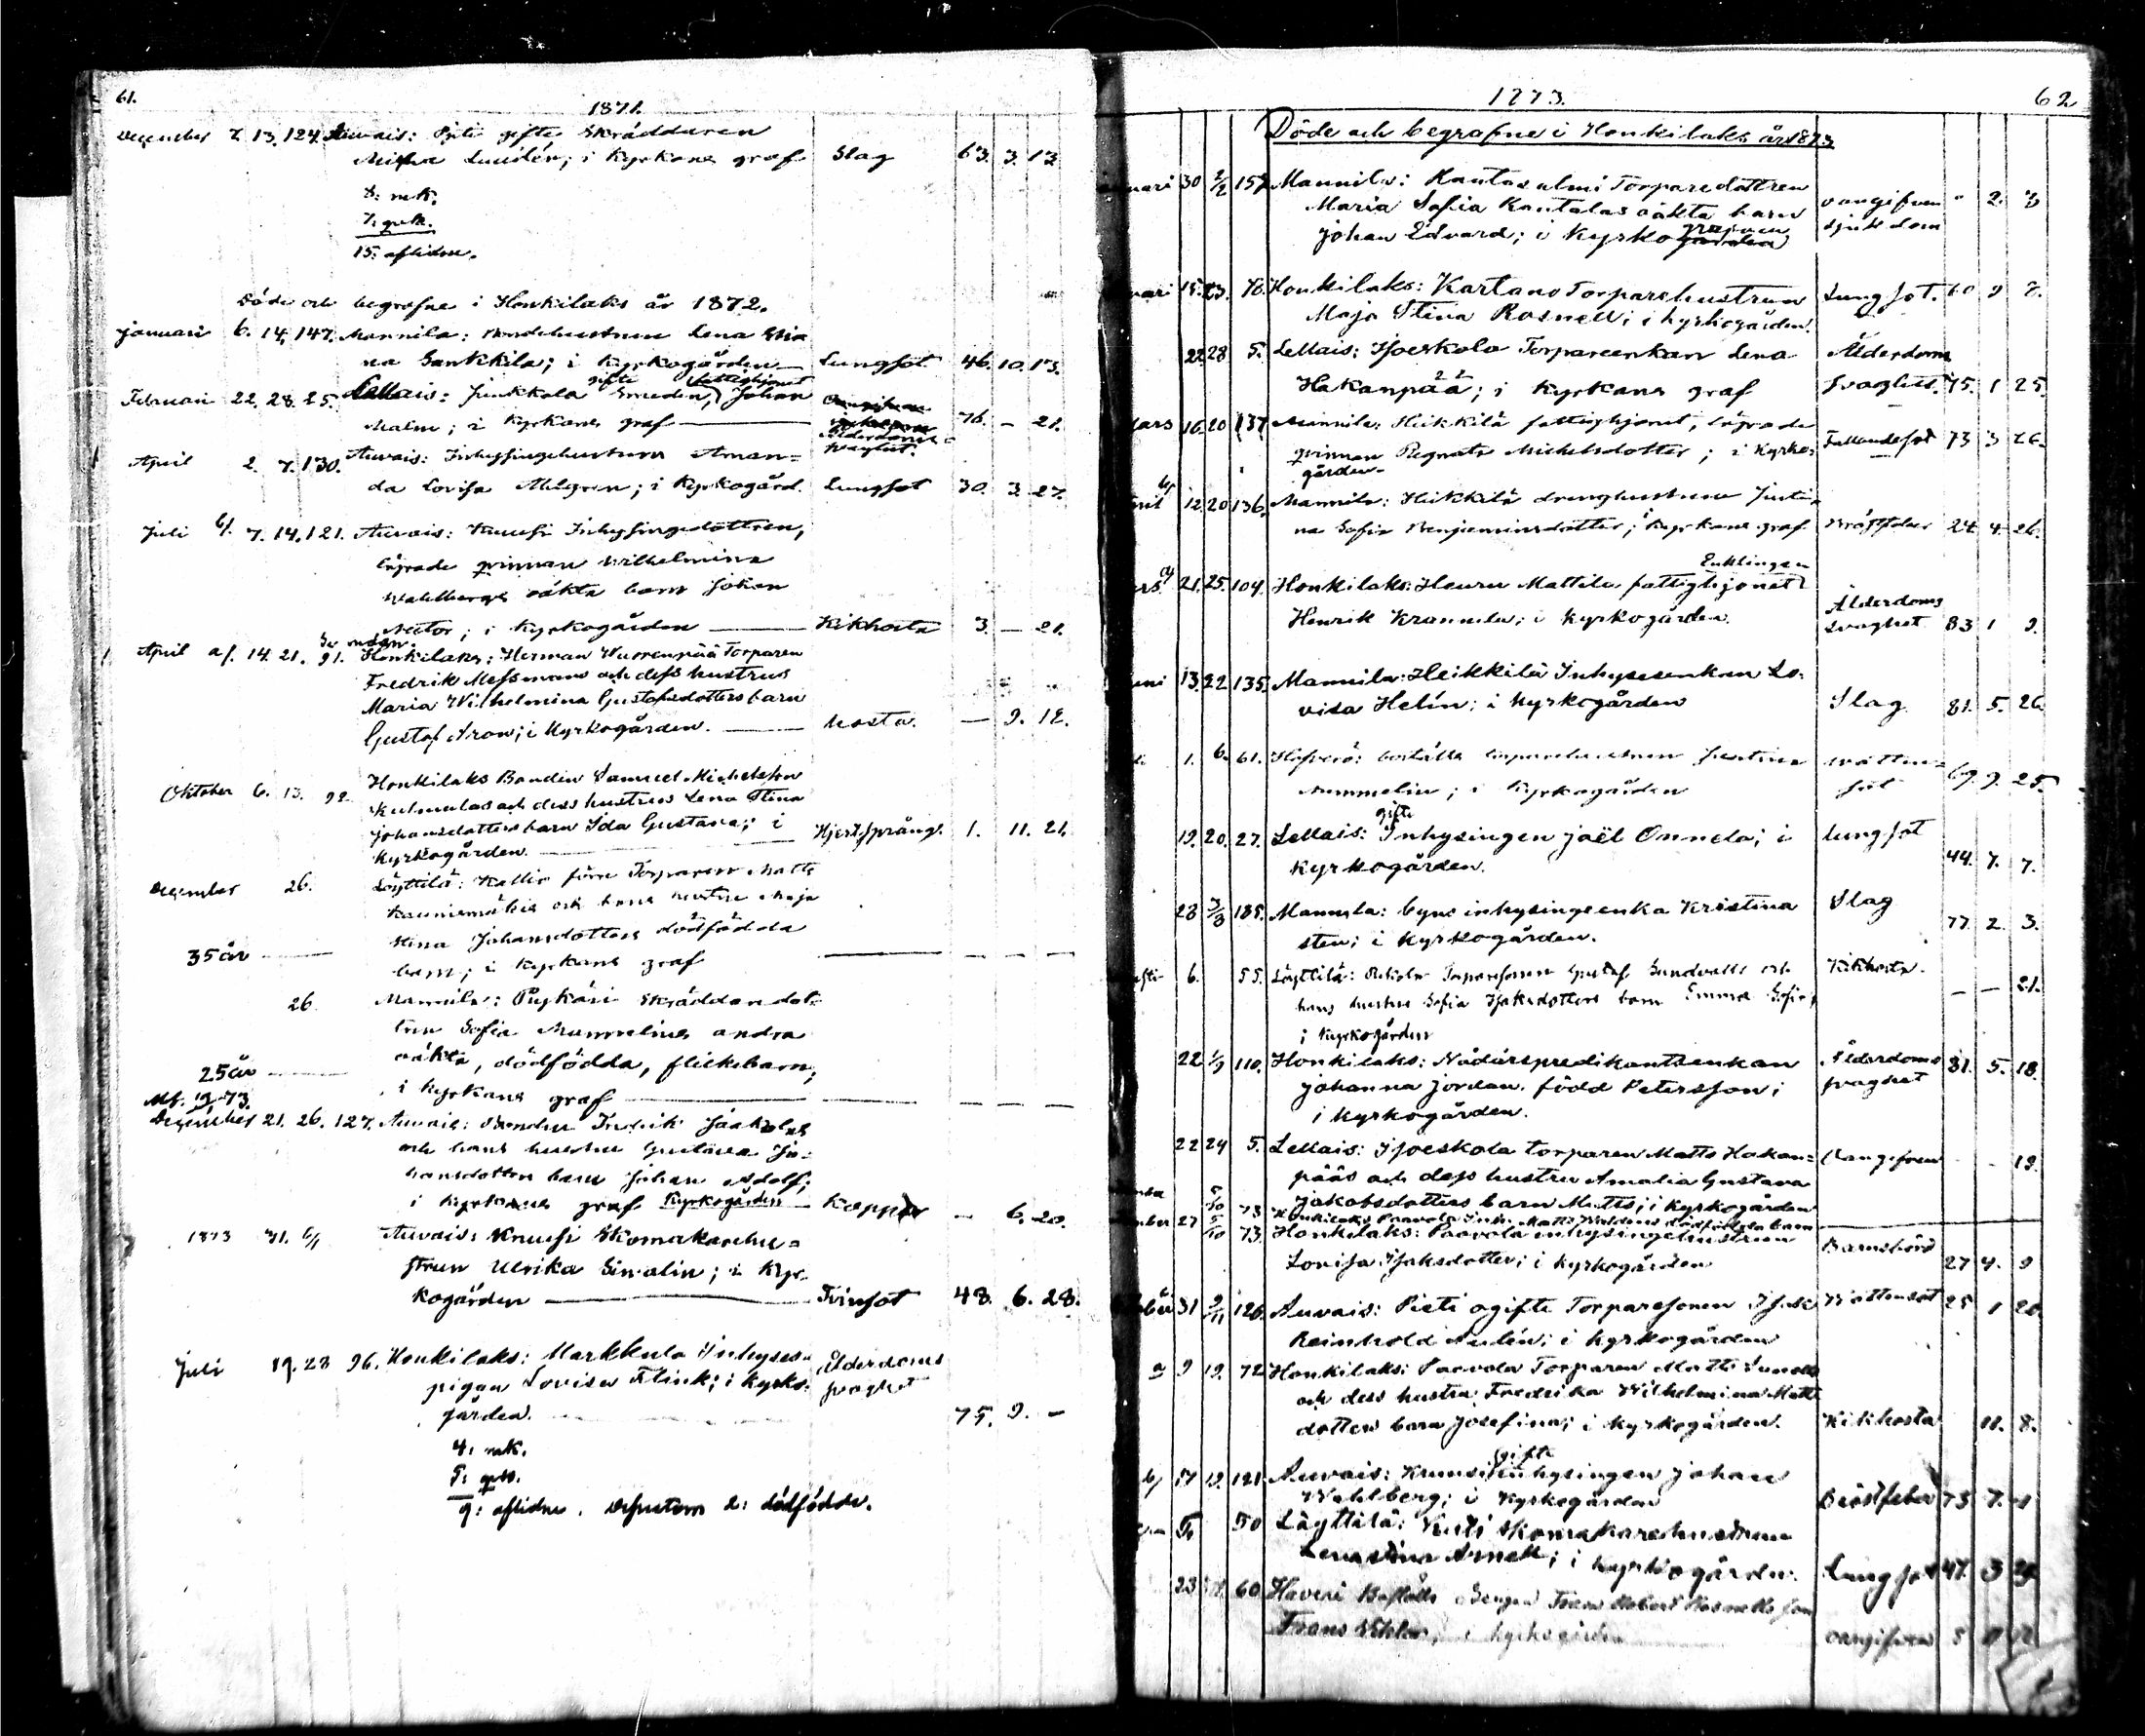 61.
1871.
December 7. 13. 124. Auvais: Pjeti gifte Skräddaren
Lundén; i Kyrkans graf Slag 63. 3. 13
8: mk.
7: qvk.
15: aflidne.
Döde och begrafne i Honkilaks år 1872.
Januari 6. 14. 147. Mannila: Bondehustrun Lena Stin
na Sankkila; i Kyrkogården Lungsot. 46. 10. 13.
gifte fattighjonet
Februari 22. 28. 25. Lellais: Junkkola Smeden, Johan
Malm; i Kyrkans graf Ålderdoms- 76. – 21.
svaghet.
April 2. 7. 130. Auvais: Inhysingehustrun Aman=
da Lovisa Ahlgren; i Kyrkogård. Lungsot 30. 3. 27.
Juli b/. 7. 14. 121. Auvais: Knuussi Inhysingedottren,
lägrade qvinnan Wilhelmina
Wahlbergs oäkta barn Johan
Nestor; i Kyrkogården Kikhosta 3. – 21.
Se nedan.
April a/. 14. 21. 91. Honkilaks: Herman Wuorenpää Torparen
Fredrik Messmans och dess hustrus
Maria Wilhelmina Gustafsdotters barn
Gustaf Aron; i Kyrkogården. Hosta. – 9. 12.
Oktober 6. 13. 92. Honkilaks Bonden Samuel Michelsson
Kulmalas och dess hustrus Lena Stina
Johansdotters barn Ida Gustava; i Hjertsprång. 1. 11. 21.
Kyrkogården.
December 26. Löyttilä: Kallio förre Torparen Matts
Kauniemäkis och hans hustru Maja
Stina Johansdotters dödfödda
35 år barn; i Kyrkans graf – – –
26. Mannila: Puskäri Skräddaredot=
tren Sofia Mammelines andra
oäkta, dödfödda, flickebarn,
25 år i Kyrkans graf – – –
December 21. 26. 127. Auvais: Bonden Fredrik Jaakolas
och hans hustru Gustava Jo=
hansdotters barn Johan Adolf;
i Kyrkans graf Kyrkogården Koppor – 6. 20.
1873 31. 6/1 Auvais: Knuussi Skomakarehu=
strun Ulrika Simolin; i Kyr-
kogården Tvinsot 48. 6. 28.
Juli 19. 28 96. Honkilaks: Markkula Inhyses-
pigan Lovisa Flink; i Kyrko- Ålderdoms
gården. svaghet 75. 9. –
4: mk.
5: qvk.
9: aflidne. dessutom 2: dödfödde.
1873.
62
Döde och begrafne i Honkilaks år 1873
uari 30 2/2 157 Mannila: Kantosalmi Torparedottren
Maria Sofia Kantalas oäkta barn oangifven " 2. 3
Johan Edvard; i Kyrkogrifven sjukdom
uari 15. 23. 76. Honkilaks: Kartano Torparehustrun Lungsot. 60 9 7.
Maja Stina Rosnell; i Kyrkogården.
22. 28 5. Lellais: Isoeskola Torpareenkan Lena Ålderdoms
Hakanpää; i Kyrkans graf svaghet. 75. 1 25.
ars 16. 20 137 Mannila: Heikkilä fattighjonet, lägrade
qvinnan Regnata Michelsdotter; i Kyrko- Fallandesot 73 3 26.
gården.
ril b/ 12 20 136. Mannila: Heikkilä drenghustrun Justi-
na Sofia Benjaminsdotter; i Kyrkans graf Bröstfeber 24 4. 26.
Enklingen
rs a/ 21. 25. 104. Honkilaks: Heuru Mattila, fattighjonet
Henrik Krannila; i Kyrkogården. Ålderdoms
svaghet 83 1 9.
uni 13. 22 135. Mannila: Heikkilä Inhysesenkan Lo-
visa Helin; i Kyrkogården Slag 81. 5. 26.
1. 6. 61. Hofverö: boställe torparehustrun Justina Watten-
Nummelin; i Kyrkogården sot 69. 9. 25.
gifte
19. 20. 27. Lellais: Inhysingen Joël Onnela; i Lungsot
Kyrkogården. 44. 7. 7.
28 3/8 185. Mannila: Inhysingeenka Kristina Slag
sten; i Kyrkogården. 77. 2. 3.
6. 55. Löyttilä: Torparesonen Gustaf Sundvalls och Kikhosta.
hans hustru Sofia Isaksdotters barn Emma Sofia; – – 21.
i Kyrkogården
22 1/9 110. Honkilaks: Nådårspredikantsenkan Ålderdoms 81. 5. 18.
Johanna Jordan. född Petersson; svaghet
i Kyrkogården.
22 24 5. Lellais: Isoeskola torparen Matts Hakan= Oangifven – – 19.
pääs och dess hustru Amalia Gustava
Jakobsdotters barn Matts; i Kyrkogården
5/10 73 Honkilaks Paavola Inh. Matts dödfödda barn
mber 27 5/10 73. Honkilaks: Paavola inhysingehustrun Barnsbörd
Lovisa Isaksdotter; i Kyrkogården 27 4. 9
ber 31 9/11 126. Auvais: Pieti ogifte Torparesonen Isak Wattensot 25 1 20
Reinhold Aulén; i Kyrkogården
a 9 19. 72 Honkilaks: Paavola Torparen Matts Sunells
och dess hustru Fredrika Wilhelmina Matts
dotters barn Josefina; i Kyrkogården. Kikhosta 11. 8.
gifte
b/ 17 19. 121. Auvais: Knuusi inhysingen Johan
Wahlberg; i Kyrkogården Bröstfeber 73 7. 4
50 Löyttilä: Skomakarehustrun
Lena Stina Arnell; i Kyrkogården. Lungsot 47. 3 29
23 60 Haveri Boställe
Frans Viktor; i Kyrkogården oangifven 5